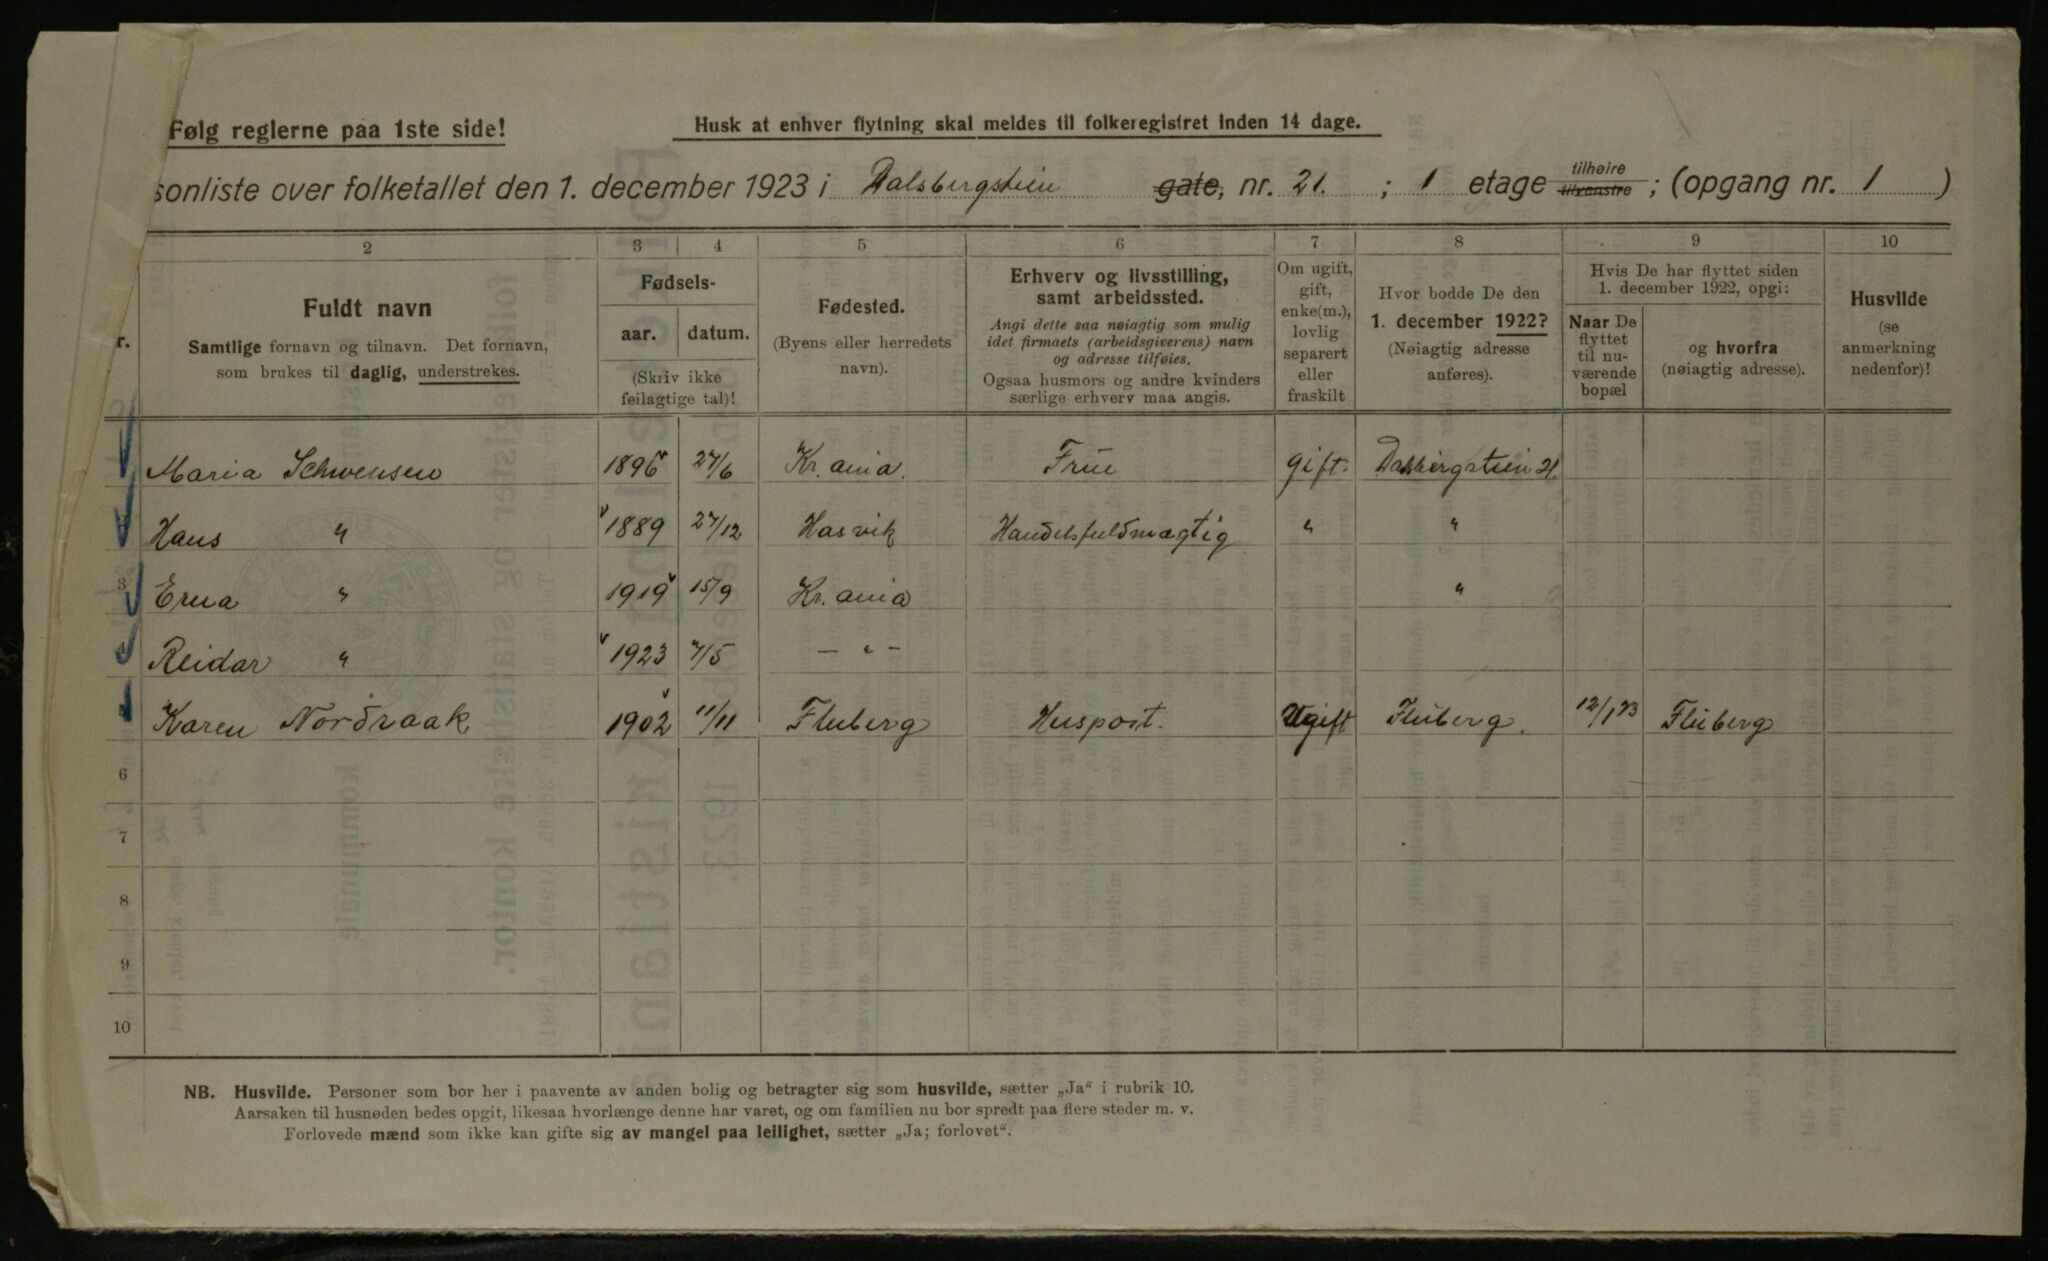 Følg reglerne paa 1ste side!
Husk at enhver flytning skal meldes til folkeregistret inden 14 dage.
sonliste over folketallet den 1. december 1923 i Dalsbergstien gate, nr. 21. ; 1 etage tilhøire tilvenstre ; (opgang nr. 1 )
2 3 4 5 6 7 8 9 10
r.
Fuldt navn
Samtlige fornavn og tilnavn. Det fornavn,
som brukes til daglig, understrekes.
Fødsels-
aar. datum.
(Skriv ikke
feilagtige tal)!
Fødested.
(Byens eller herredets
navn).
Erhverv og livsstilling,
samt arbeidssted.
Angi dette saa nøiagtig som mulig
idet firmaets (arbeidsgiverens) navn
og adresse tilføies.
Ogsaa husmors og andre kvinders
særlige erhverv maa angis.
Om ugift,
gift,
enke(m.),
lovlig
separert
eller
fraskilt
Hvor bodde De den
1. december 1922?
(Nøiagtig adresse
anføres).
Hvis De har flyttet siden
1. december 1922, opgi:
Naar De
flyttet
til nu-
værende
bopæl
og hvorfra
(nøiagtig adresse).
Husvilde
(se
anmerkning
nedenfor)!
Maria Schwensen 1896 27/6 Kr.ania. Frue gift. Dalsbergstien 21.
Hans " 1889 27/12 Hasvik Handelsfuldmægtig " "
3 Erna " 1919 15/9 Kr.ania "
4 Reidar " 1923 /5 — " —
Karen Nordraak 1902 11/11 Fluberg Huspost. Ugift Fluberg. 12/1 23 Fluberg
6
7
8
9
10
NB. Husvilde. Personer som bor her i paavente av anden bolig og betragter sig som husvilde, sætter „Ja“ i rubrik 10.
Aarsaken til husnøden bedes opgit, likesaa hvorlænge denne har varet, og om familien nu bor spredt paa flere steder m. v.
Forlovede mænd som ikke kan gifte sig av mangel paa leilighet, sætter „Ja; forlovet“.